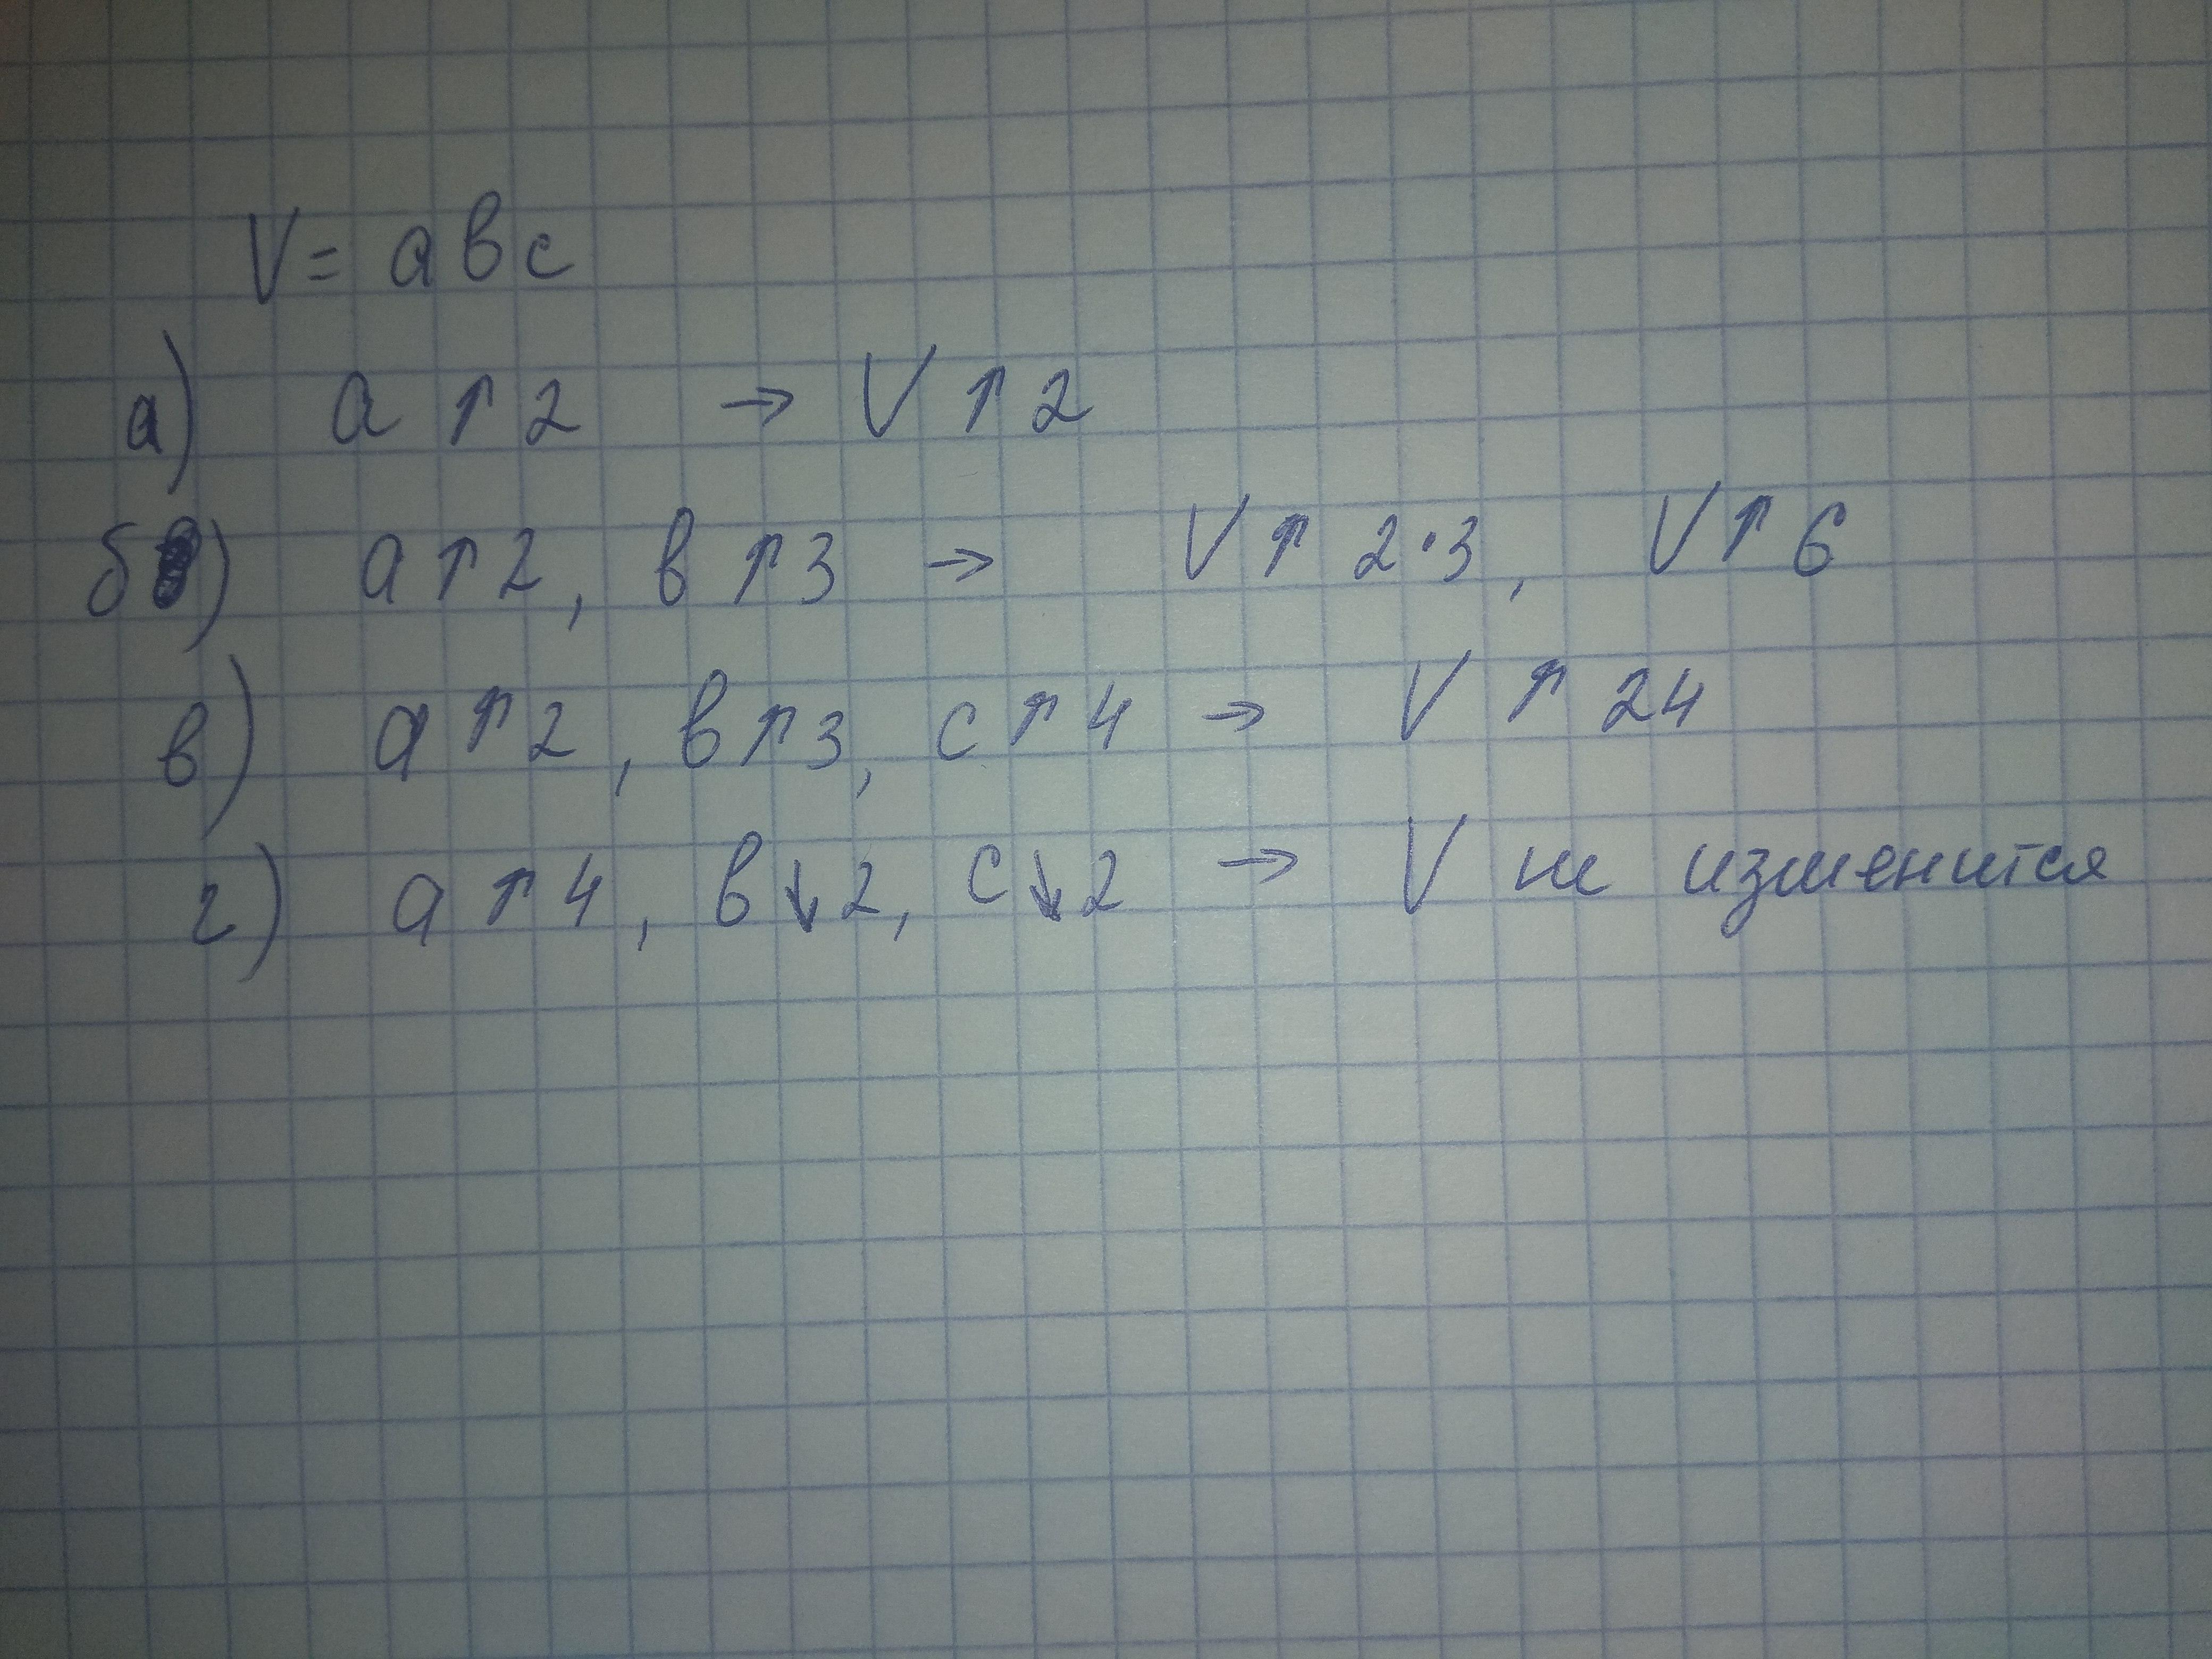 V = авс
а) а ↑ 2 → V ↑ 2
б) а ↑ 2, в ↑ 3 → V ↑ 2·3, V ↑ 6
в) а ↑ 2, в ↑ 3, с ↑ 4 → V ↑ 24
г) а ↑ 4, в ↓ 2, с ↓ 2 → V не изменится